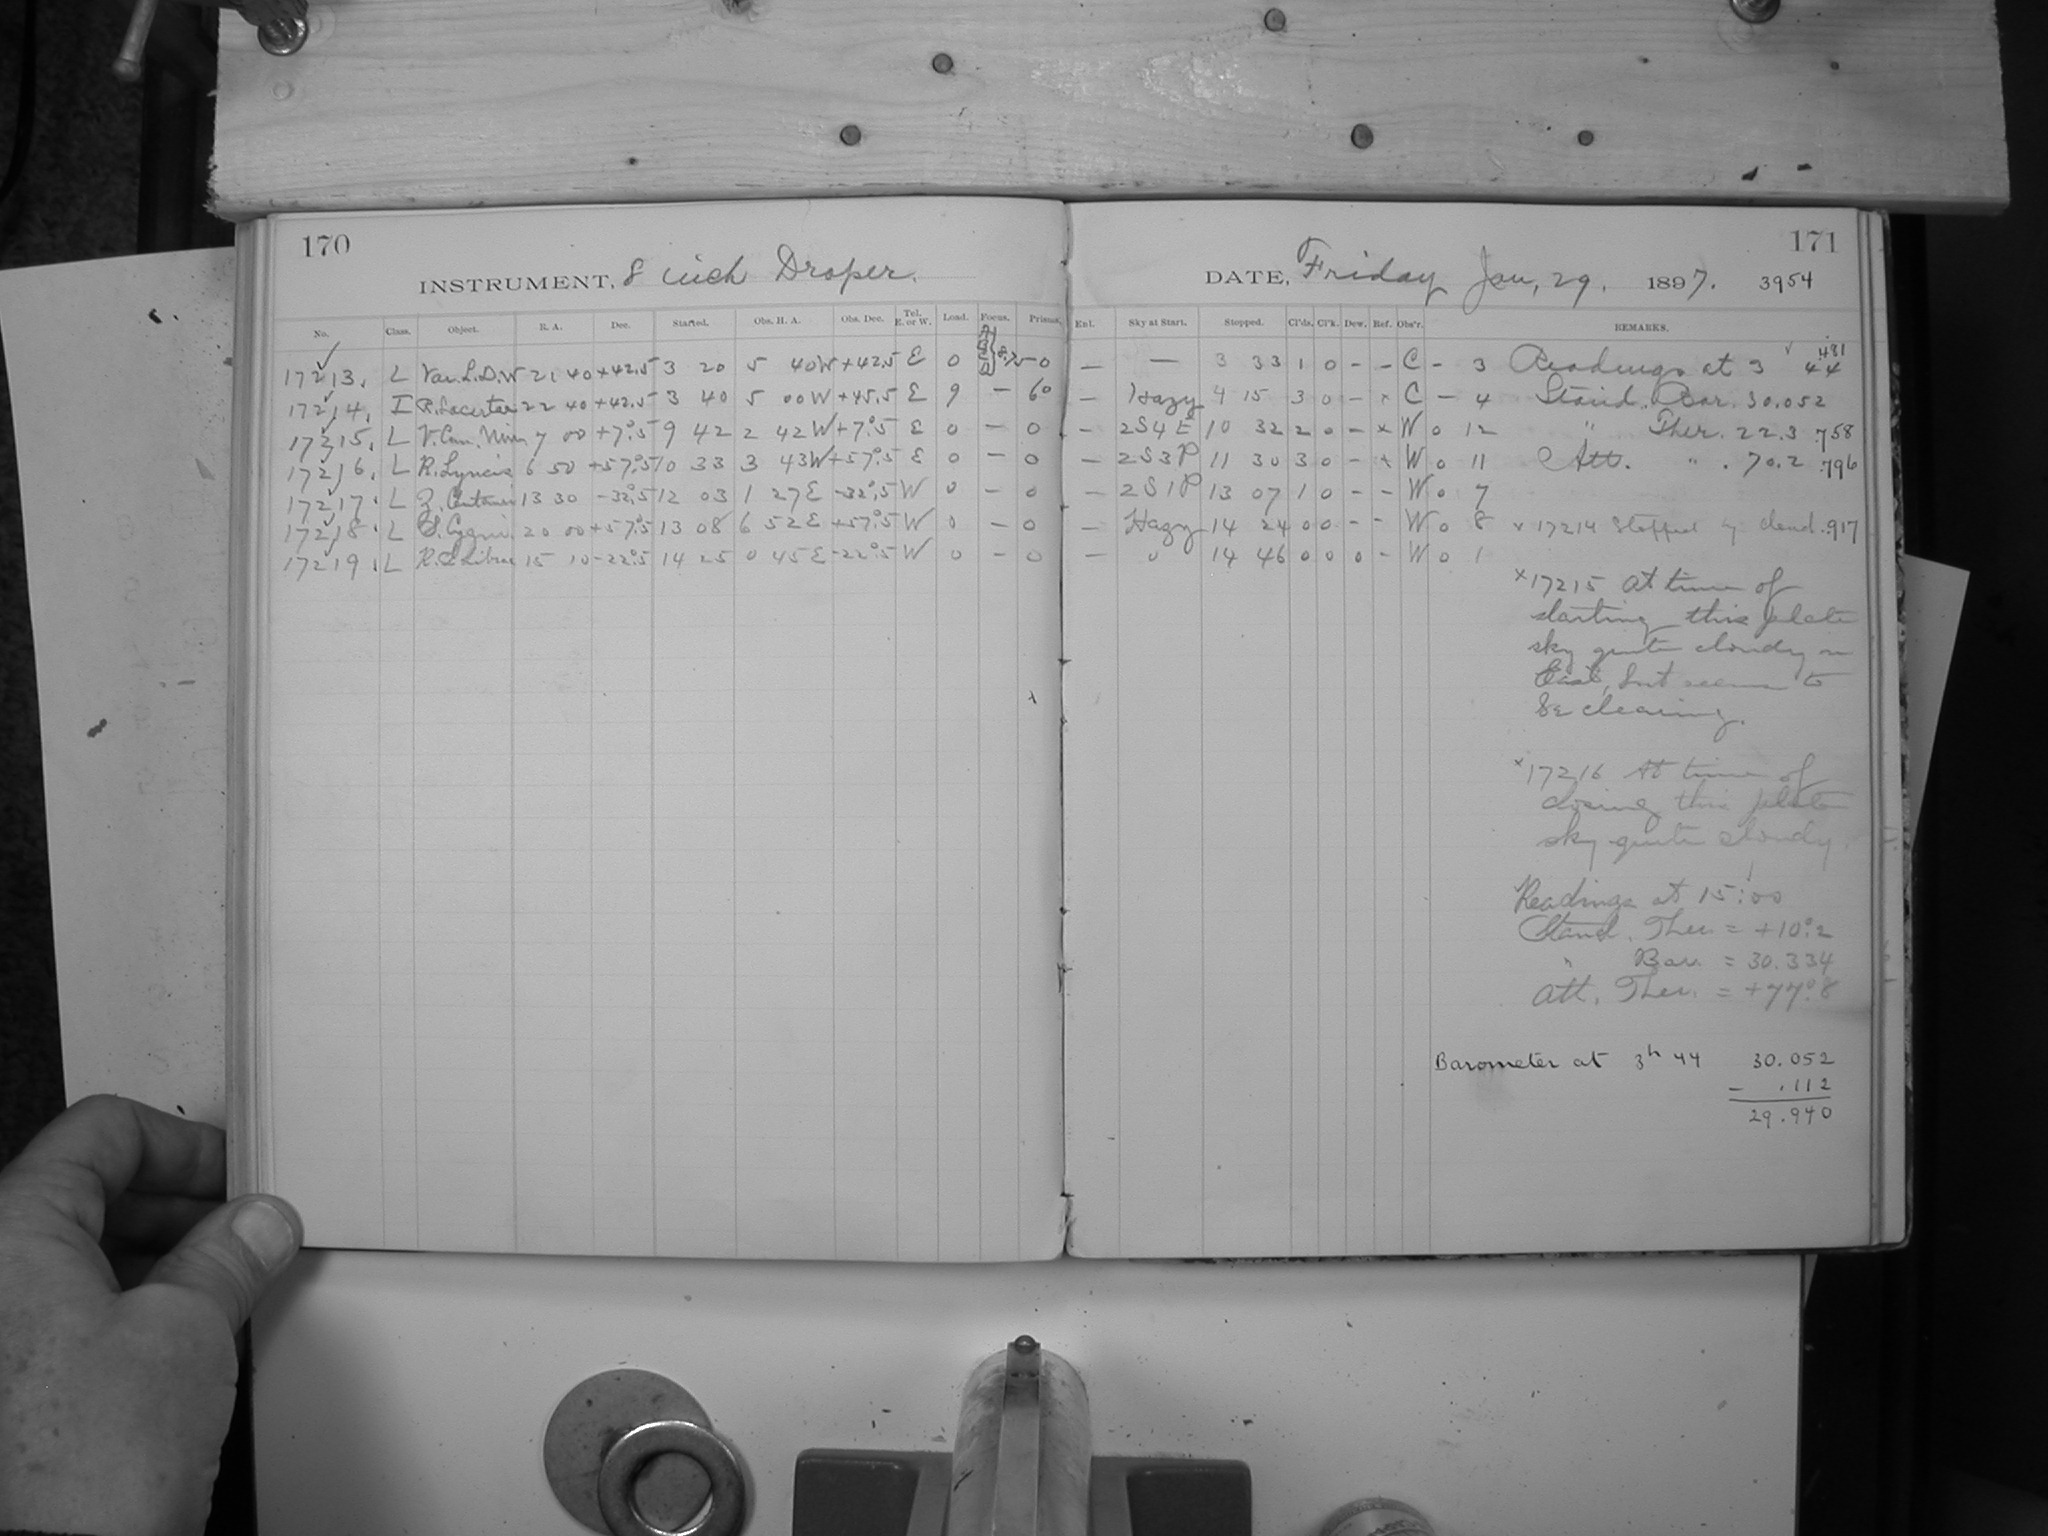 170
INSTRUMENT, 8 inch Draper.
No. Class. Object. R. A. Dec. Started. Obs. H. A. Obs. Dec. Tel. E. or W. Load. Focus. Prisms.
17213. L Var. L.D.W 21 40 +42.5 3 20 5 40W +42.5 E 0 0
17214. I R. Lacertae 22 40 +42.5 3 40 5 00W +45.5 E 9 - 60
17215. L V. Can. Min 7 00 +7°.5 9 42 2 42W +7°.5 E 0 - 0
17216. L R. Lyncis 6 50 +57°.5 10 33 3 43W +57°.5 E 0 - 0
17217. L 13 30 -32°.5 12 03 1 27E -32°.5 W 0 - 0
17218. L Cygni. 20 00 +57°.5 13 08 6 52E +57°.5 W 0 - 0
17219. L Librae 15 10 -22°.5 14 25 0 45E -22°.5 W 0 - 0
171
DATE, Friday Jan, 29, 1897. 3954
Ent. Sky at Start. Stopped. Cl'ds. Cl'k. Dew. Ref. Obs'r. REMARKS.
— — 3 33 1 0 - - C - 3 Readings at 3 44 .481
— Hazy 4 15 3 0 - x C - 4 Stand. Bar. 30.052
— 2S4E 10 32 2 0 - x W 0 12 " Ther. 22.3 .758
— 2S3P 11 30 3 0 - x W 0 11 Att. " . 70.2 .796
— 2S1P 13 07 1 0 - - W 0 7
— Hazy 14 24 0 0 - - W 0 8 x 17214 Stopped by cloud. .917
— " 14 46 0 0 0 - W 0 1
x 17215 At time of
starting this plate
sky quite cloudy in
East, but seems to
be clearing.
x 17216 At time of
closing this plate
sky quite cloudy.
Readings at 15:00
Stand. Ther. = +10°.2
" Bar. = 30.334
Att. Ther. = +77°.8
Barometer at 3h 44 30.052
- .112
29.940